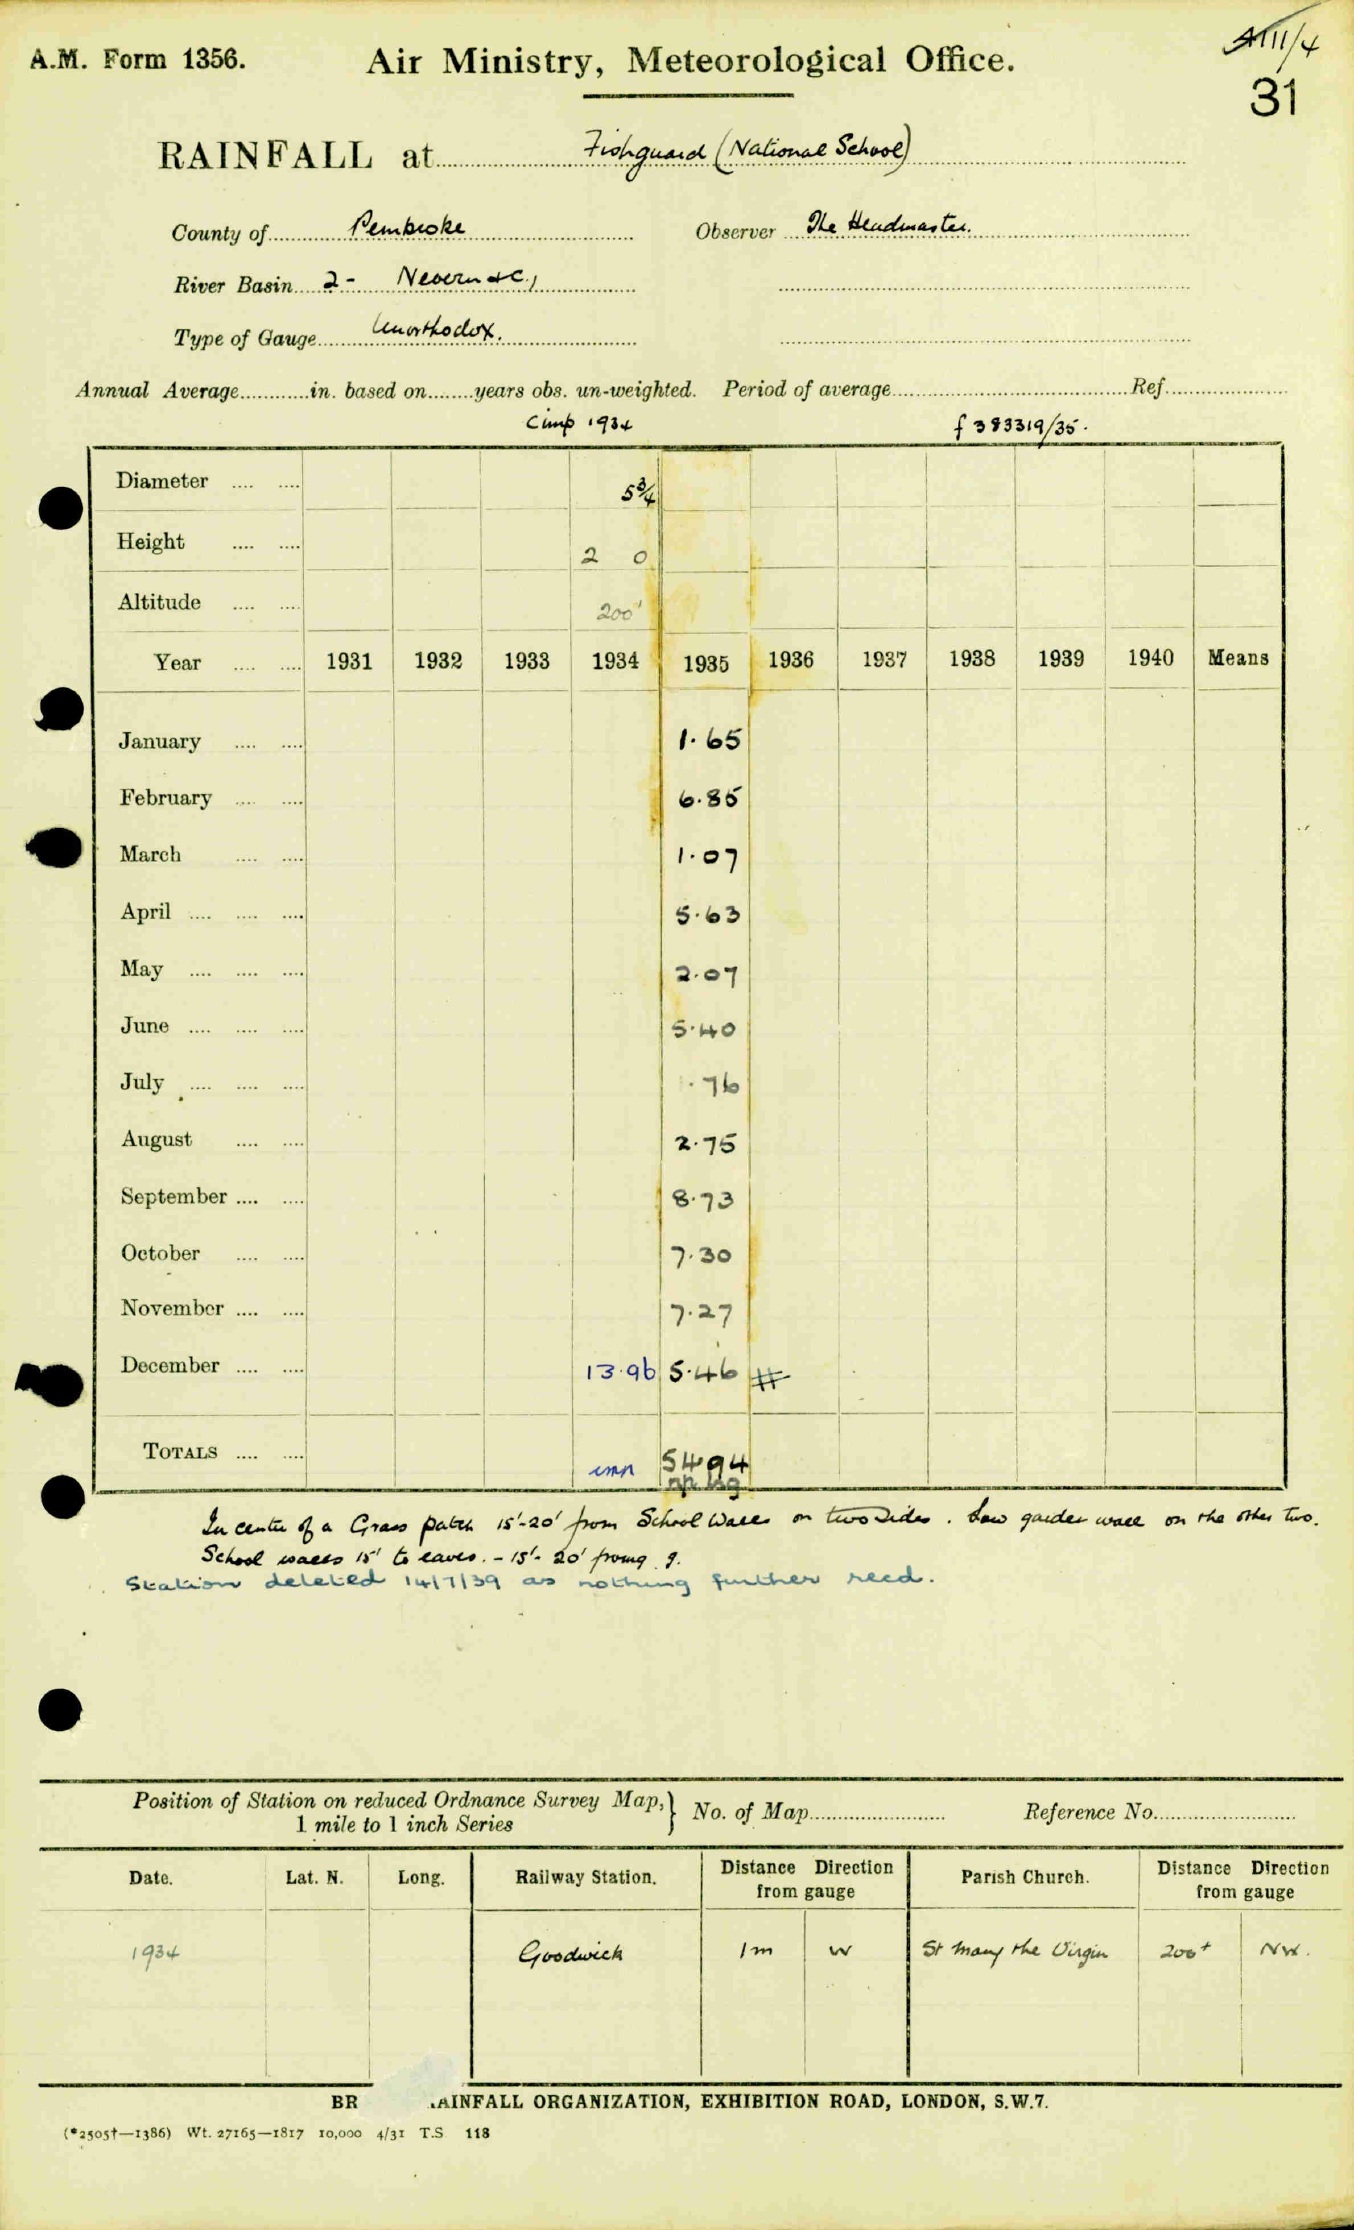 A.M. Form 1356.
Air Ministry, Meteorological Office.
31
RAINFALL at Fishguard (National School)
County of Pembroke Observer The Headmaster.
River Basin 2 - Nevern &c.,
Type of Gauge Unorthodox.
Annual Average in. based on years obs. un-weighted. Period of average Ref.
1934 f 383319/35.
Diameter 5¾
Height 2 0
Altitude 200'
Year 1931 1932 1933 1934 1935 1936 1937 1938 1939 1940 Means
January 1.65
February 6.85
March 1.07
April 5.63
May 2.07
June 5.40
July .76
August 2.75
September 8.73
October 7.30
November 7.27
December 13.96 5.46 #
TOTALS 54.94
In centre of a Grass patch 15'-20' from School Walls on two sides. Low garden wall on the other two.
School walls 15' to eaves. - 15'- 20' from g.
Station deleted 14/7/39 as nothing further recd.
Position of Station on reduced Ordnance Survey Map, 1 mile to 1 inch Series } No. of Map Reference No.
Date. Lat. N. Long. Railway Station. Distance Direction from gauge Parish Church. Distance Direction from gauge
1934 Goodwick 1m W St Mary the Virgin 200+ NW.
BR AINFALL ORGANIZATION, EXHIBITION ROAD, LONDON, S.W.7.
(*2505†—1386) Wt. 27165—1817 10,000 4/31 T.S 118